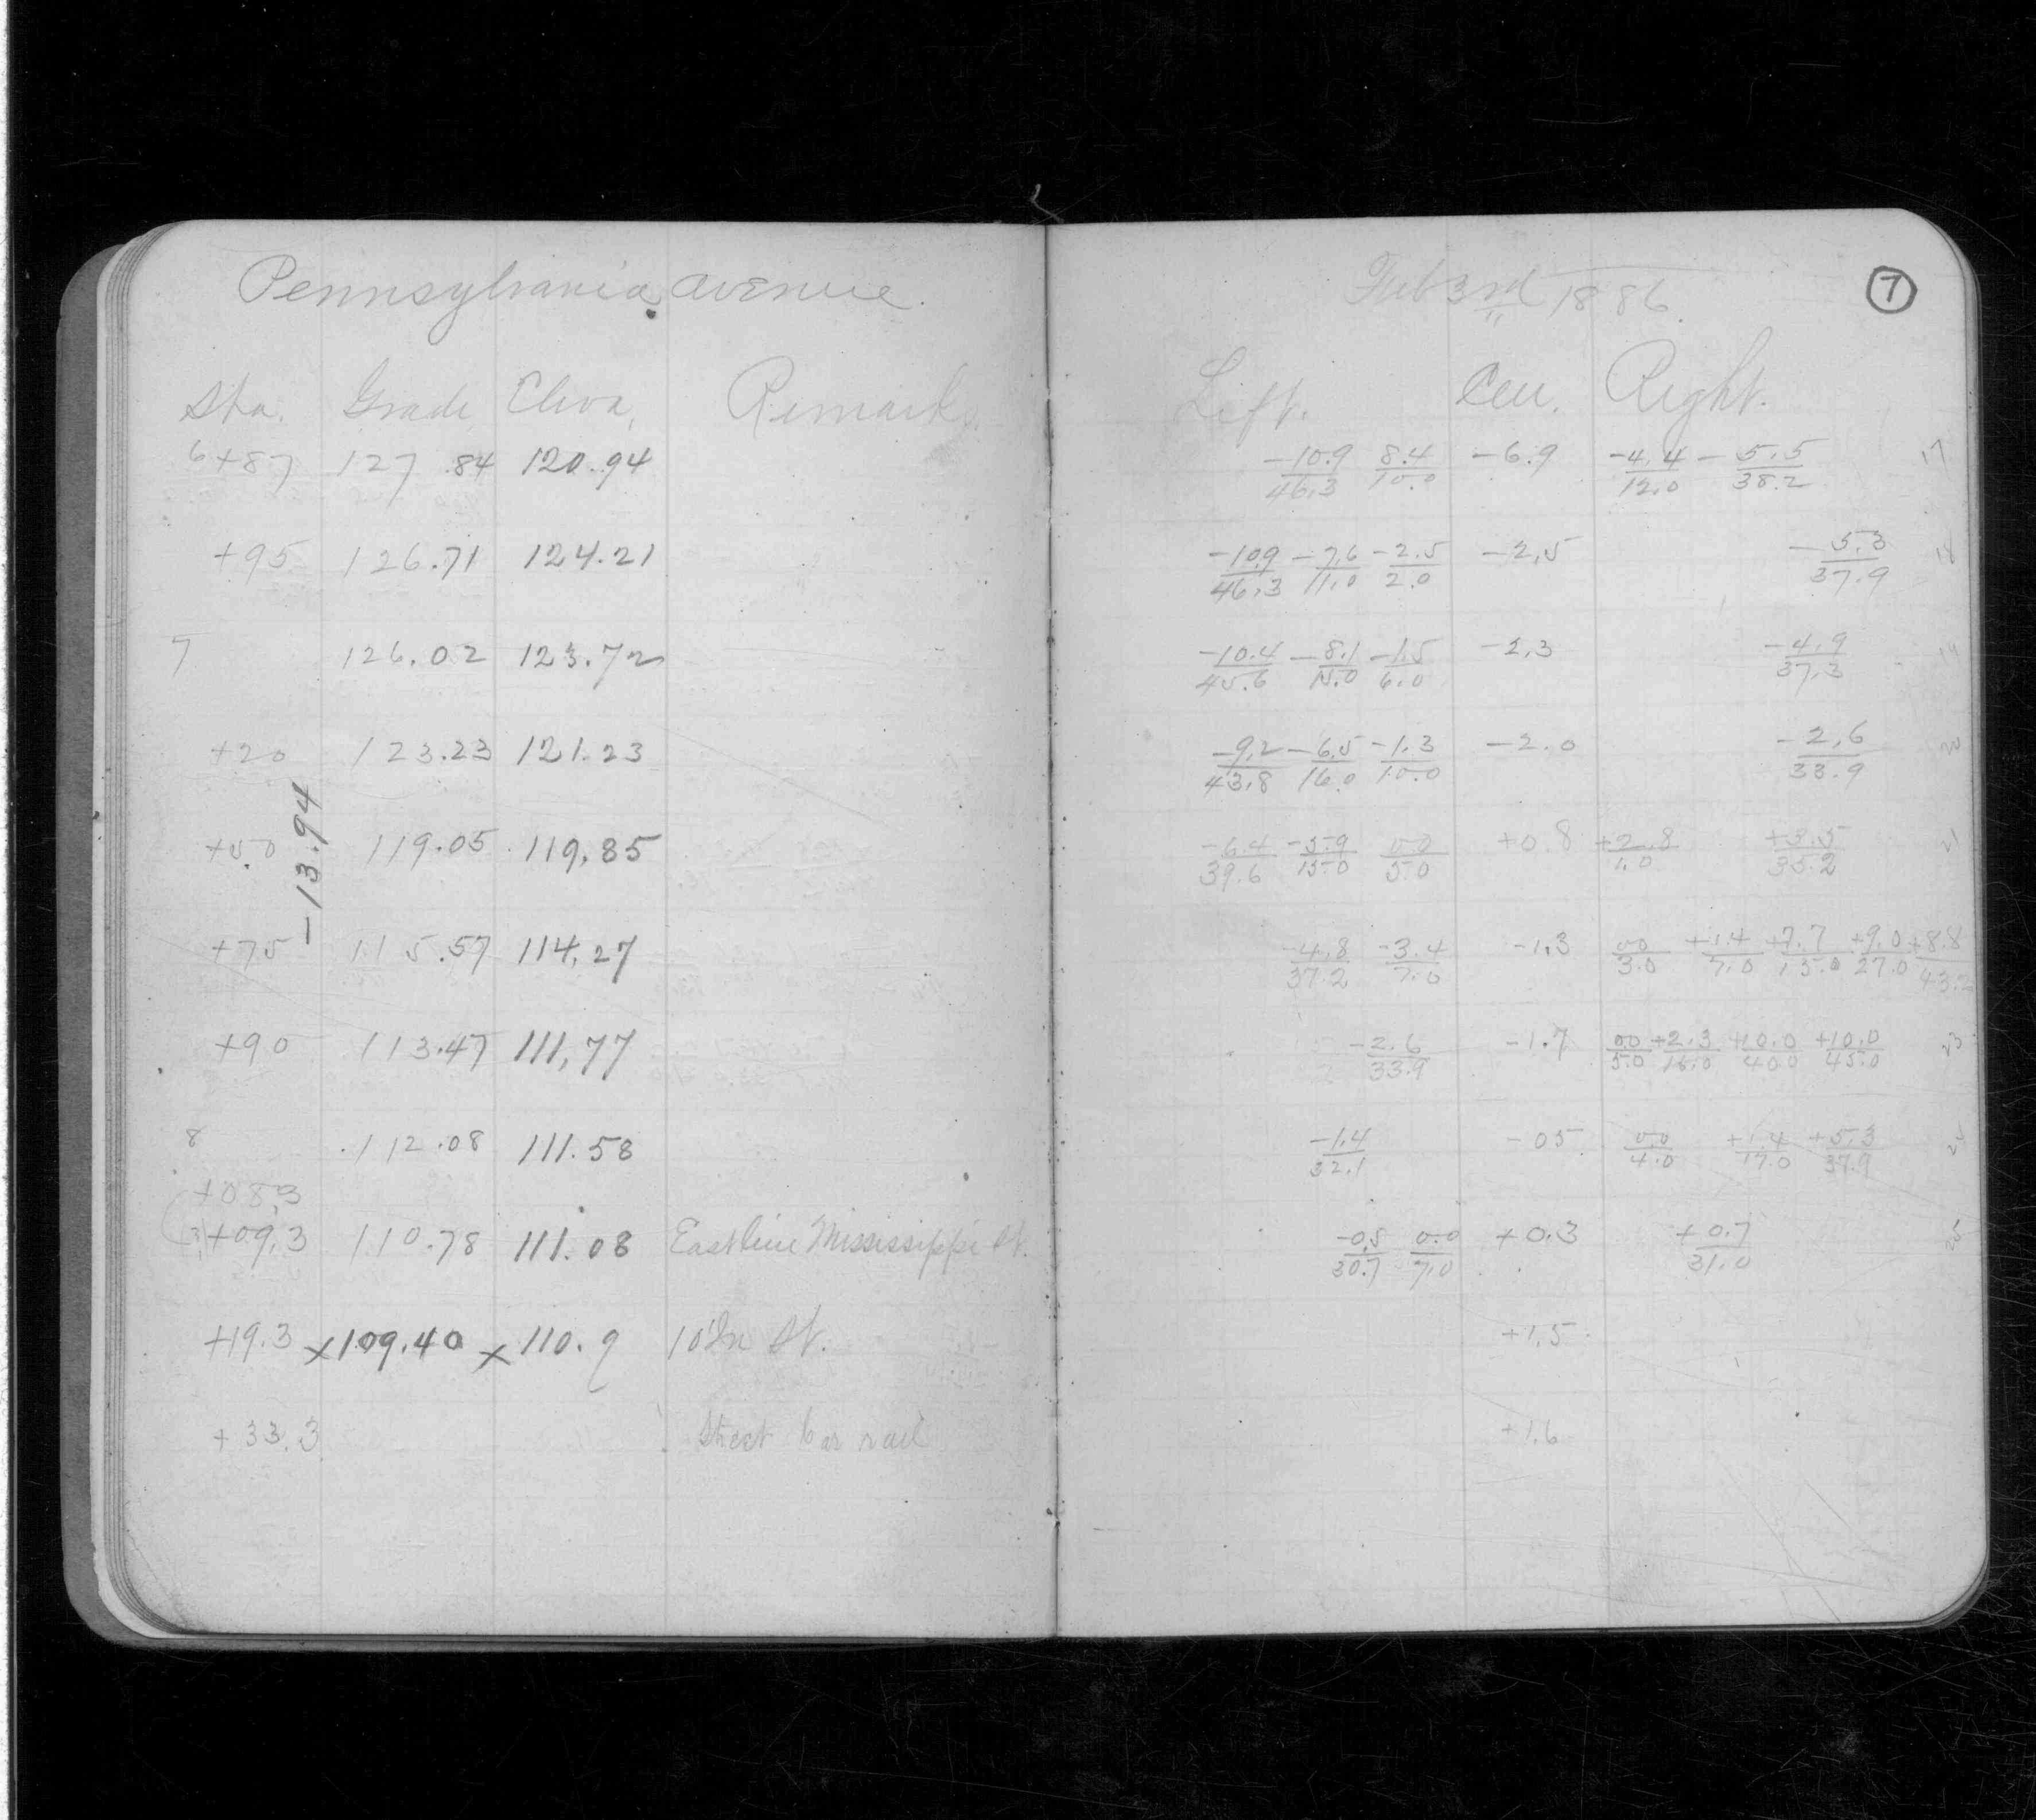 Pennsylvania avenue.
Sta. Grade Eleva, Remarks
6+87 127.84 120.94
+95 126.71 124.21
7 126.02 123.72
+20 123.23 121.23
-13.94
+50 119.05 119.85
+75 115.57 114.27
+90 113.47 111.77
8 112.08 111.58
+08.3
+09.3 110.78 111.08 East line Mississippi St.
+19.3 x109.40 x110.9 10' In St.
+33.3 Street Car rail
Feb 3rd 1886.
7
Left. Cen. Right.
-10.9/46.3 8.4/10.0 -6.9 -4.4/12.0 -5.5/38.2 17
-10.9/46.3 -7.6/11.0 -2.5/2.0 -2.5 -5.3/37.9 18
-10.4/45.6 -8.1/15.0 -1.5/6.0 -2.3 -4.9/37.3
-9.2/43.8 -6.5/16.0 -1.3/10.0 -2.0 -2.6/33.9 20
-6.4/39.6 -5.9/15.0 0.0/5.0 +0.8 +2.8/1.0 +3.5/35.2 21
-4.8/37.2 -3.4/7.0 -1.3 0.0/3.0 +1.4/7.0 +7.7/13.0 +9.0/27.0 +8.8/43.2
-2.6/33.9 -1.7 0.0/5.0 +2.3/16.0 +10.0/40.0 +10.0/45.0 23
-1.4/32.1 -05 0.0/4.0 +1.4/17.0 +5.3/37.9
-0.5/30.7 0.0/7.0 +0.3 +0.7/31.0 25
+1.5
+1.6